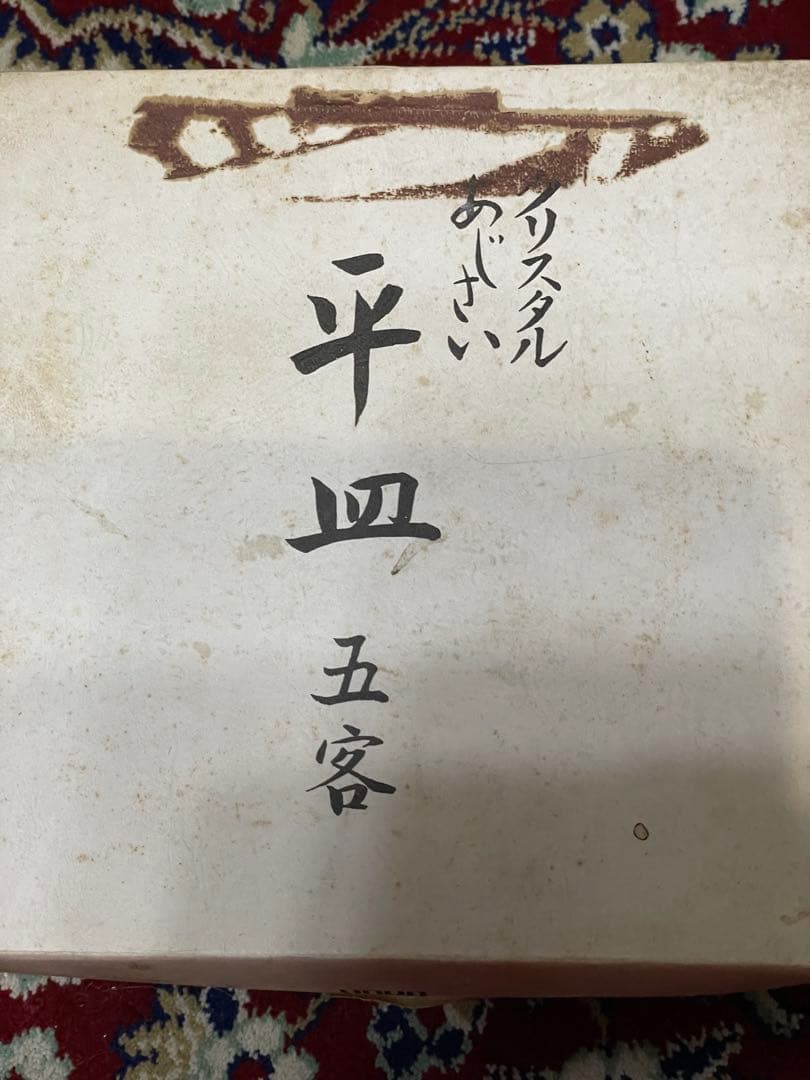 クリスタル
あじさい
平皿
五客